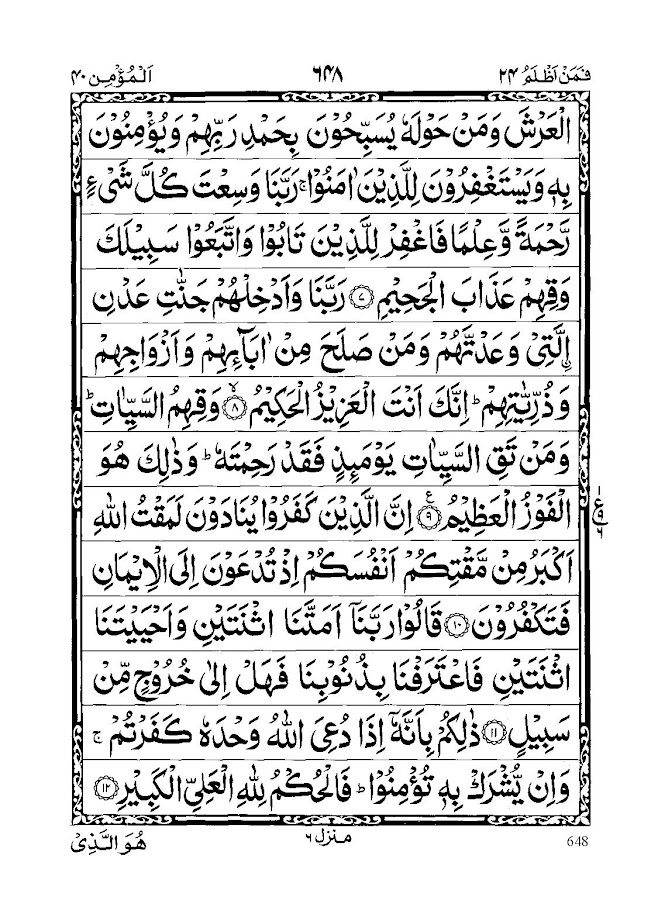 فَمَنۡ اَظۡلَمُ ۲۴ ۶۴۸ اَلۡمُؤۡمِن ۴۰
الۡعَرۡشَ وَمَنۡ حَوۡلَهٗ يُسَبِّحُوۡنَ بِحَمۡدِ رَبِّهِمۡ وَيُؤۡمِنُوۡنَ
بِهٖ وَيَسۡتَغۡفِرُوۡنَ لِلَّذِيۡنَ اٰمَنُوۡا ۚ رَبَّنَا وَسِعۡتَ كُلَّ شَىۡءٍ
رَّحۡمَةً وَّعِلۡمًا فَاغۡفِرۡ لِلَّذِيۡنَ تَابُوۡا وَاتَّبَعُوۡا سَبِيۡلَكَ
وَقِهِمۡ عَذَابَ الۡجَحِيۡمِ ۝۷ رَبَّنَا وَاَدۡخِلۡهُمۡ جَنّٰتِ عَدۡنِ
اۨلَّتِىۡ وَعَدْتَّهُمۡ وَمَنۡ صَلَحَ مِنۡ اٰبَآٮِٕهِمۡ وَاَزۡوَاجِهِمۡ
وَذُرِّيّٰتِهِمۡ ؕ اِنَّكَ اَنۡتَ الۡعَزِيۡزُ الۡحَكِيۡمُ ۝۸ ۙ وَقِهِمُ السَّيِّاٰتِ ؕ
وَمَنۡ تَقِ السَّيِّاٰتِ يَوۡمَٮِٕذٍ فَقَدۡ رَحِمۡتَهٗ ؕ وَذٰلِكَ هُوَ
الۡفَوۡزُ الۡعَظِيۡمُ ۝۹ ع اِنَّ الَّذِيۡنَ كَفَرُوۡا يُنَادَوۡنَ لَمَقۡتُ اللّٰهِ
اَكۡبَرُ مِنۡ مَّقۡتِكُمۡ اَنۡفُسَكُمۡ اِذۡ تُدۡعَوۡنَ اِلَى الۡاِيۡمَانِ
فَتَكۡفُرُوۡنَ ۝۱۰ قَالُوۡا رَبَّنَاۤ اَمَتَّنَا اثۡنَتَيۡنِ وَاَحۡيَيۡتَنَا
اثۡنَتَيۡنِ فَاعۡتَرَفۡنَا بِذُنُوۡبِنَا فَهَلۡ اِلٰى خُرُوۡجٍ مِّنۡ
سَبِيۡلٍ ۝۱۱ ذٰلِكُمۡ بِاَنَّهٗۤ اِذَا دُعِىَ اللّٰهُ وَحۡدَهٗ كَفَرۡتُمۡ ۚ
وَاِنۡ يُّشۡرَكۡ بِهٖ تُؤۡمِنُوۡا ؕ فَالۡحُكۡمُ لِلّٰهِ الۡعَلِىِّ الۡكَبِيۡرِ ۝۱۲
۱
ع ۹
۶
648 منزل ۶ هُوَ الَّذِىۡ